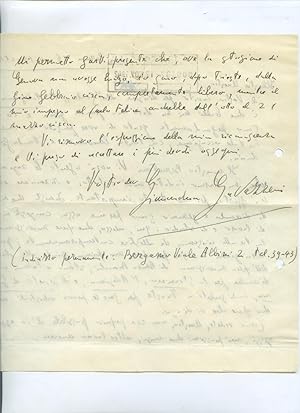 Mi permetto farVi presente che, ove la stagione di
Genova non avesse luogo, io sarei, dopo Trieste, dalla
fine Febbraio circa, completamente libero, mentre il
mio impegno al Carlo Felice andrebbe dall' otto al 21
marzo circa.
Vi rinnovo l'espressione della mia riconoscenza
e Vi prego di accettare i più devoti ossequi.
Vostro dev.
Gianandrea Gavazzeni
(indirizzo permanente: Bergamo Viale Albini 2. Tel. 39-43)